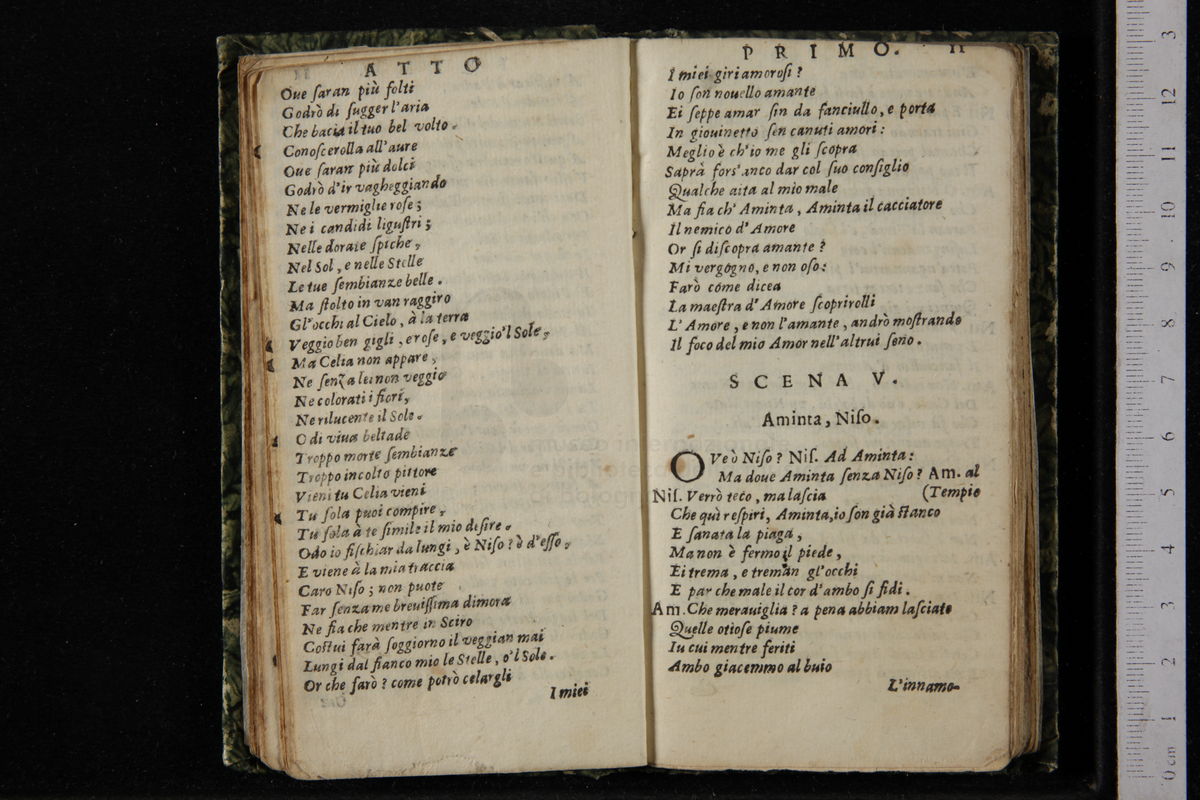 ATTO
Oue ſaran più folti
Godrò di ſugger l'aria
Che bacia il tuo bel volto.
Conoſcerolla all'aure
Oue ſaran più dolci
Godrò d'ir vagheggiando
Ne le vermiglie roſe;
Ne i candidi liguſtri;
Nelle dorate ſpiche,
Nel Sol, e nelle Stelle
Le tue ſembianze belle.
Ma ſtolto in van raggiro
Gl'occhi al Cielo, à la terra
Veggio ben gigli, e roſe, e veggio'l Sole,
Ma Celia non appare,
Ne ſenza lei non veggio
Ne colorati i fiori,
Ne rilucente il Sole.
O di viua beltade
Troppo morte ſembianze
Troppo incolto pittore
Vieni tu Celia vieni
Tu ſola puoi compire,
Tu ſola à te ſimile il mio deſire.
Odo io fiſchiar da lungi, è Niſo? è d'eſſo,
E viene à la mia traccia
Caro Niſo; non puote
Far ſenza me breuiſſima dimora
Ne fia che mentre in Sciro
Coſtui farà ſoggiorno il veggian mai
Lungi dal fianco mio le Stelle, o'l Sole.
Or che farò? come potrò celargli
I miei
PRIMO. 11
I miei giri amoroſi?
Io ſon nouello amante
Ei ſeppe amar ſin da fanciullo, e porta
In giouinetto ſen canuti amori:
Meglio è ch'io me gli ſcopra
Saprà forſ'anco dar col ſuo conſiglio
Qualche aita al mio male
Ma fia ch'Aminta, Aminta il cacciatore
Il nemico d'Amore
Or ſi diſcopra amante?
Mi vergogno, e non oſo:
Farò come dicea
La maeſtra d'Amore ſcoprirolli
L'Amore, e non l'amante, andrò moſtrando
Il foco del mio Amor nell'altrui ſeno.
SCENA V.
Aminta, Niſo.
OVe ò Niſo? Niſ. Ad Aminta:
Ma doue Aminta ſenza Niſo? Am. al
Niſ. Verrò teco, ma laſcia (Tempio
Che quì reſpiri, Aminta, io ſon già ſtanco
E ſanata la piaga,
Ma non è fermo il piede,
Ei trema, e treman gl'occhi
E par che male il cor d'ambo ſi fidi.
Am. Che merauiglia? a pena abbiam laſciate
Quelle otioſe piume
Iu cui mentre feriti
Ambo giacemmo al buio
L'innamo-
museo internazionale
e biblioteca
di bologna
0 cm 1 2 3 4 5 6 7 8 9 10 11 12 3